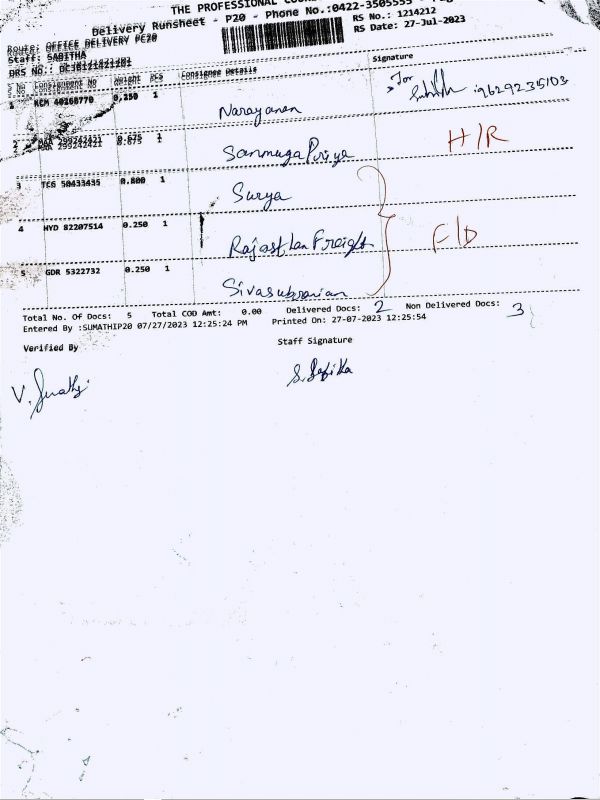 THE PROFESSIONAL
Delivery Runsheet - P20 - Phone No.:0422-3505555
Route: OFFICE DELIVERY PC20
RS No.: 1214212
Staff: SABITHA
RS Date: 27-Jul-2023
DRS NO.:
S No Consignment No Weight pcs Consignee Details Signature
1 KCM 40268770 0.250 1 Narayanan For 9629235103
2 MAA 299242421 0.675 1 Sanmuga Puriya H/R
3 TCG 50433435 0.800 1 Surya
4 HYD 82207514 0.250 1 Rajasthan Freight F/D
5 GDR 5322732 0.250 1 Sivasubramian
Total No. Of Docs: 5 Total COD Amt: 0.00 Delivered Docs: 2 Non Delivered Docs: 3
Entered By :SUMATHIP20 07/27/2023 12:25:24 PM Printed On: 27-07-2023 12:25:54
Verified By Staff Signature